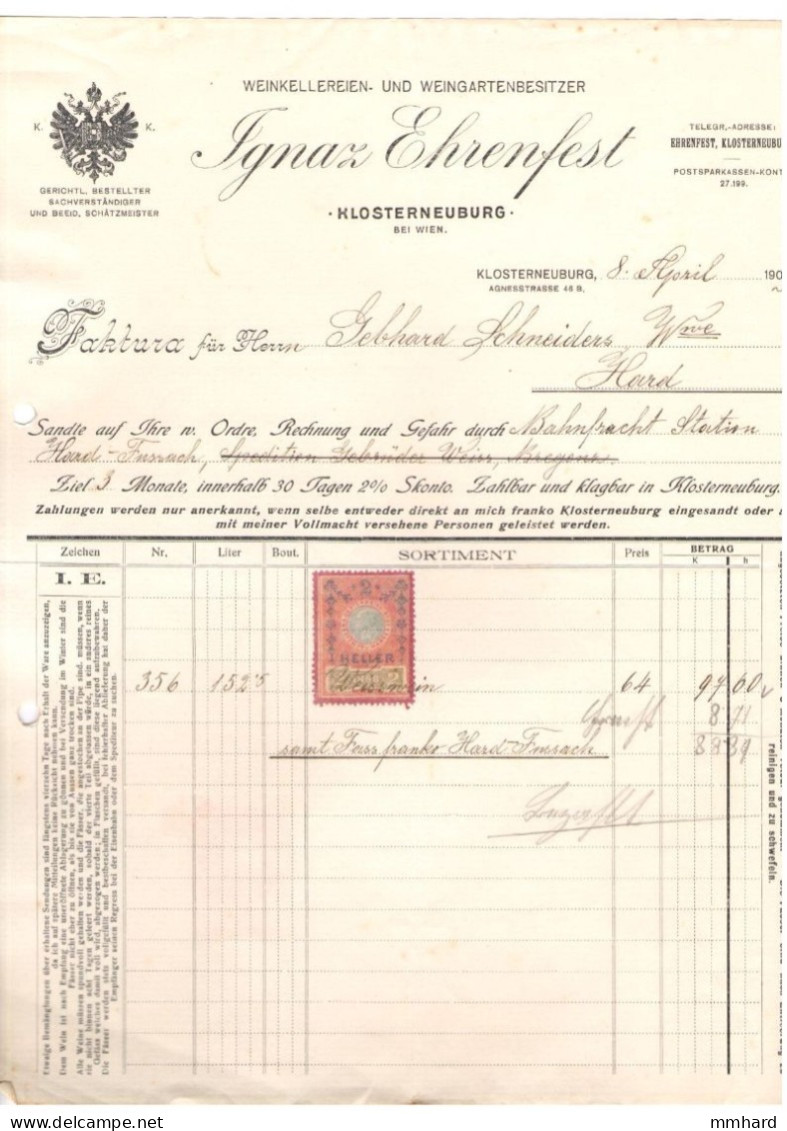 WEINKELLEREIEN- UND WEINGARTENBESITZER
Ignaz Ehrenfest
· KLOSTERNEUBURG ·
BEI WIEN.
K. K.
GERICHTL. BESTELLTER
SACHVERSTÄNDIGER
UND BEEID. SCHÄTZMEISTER
TELEGR.-ADRESSE:
EHRENFEST, KLOSTERNEUBU
POSTSPARKASSEN-KONT
27.199.
KLOSTERNEUBURG, 8. April 190
AGNESSTRASSE 46 B.
Faktura für Herrn Gebhard Schneiders Wwe
Hard
Sandte auf Ihre w. Ordre, Rechnung und Gefahr durch Bahnfracht Station
Hard-Fussach, Spedition Gebrüder Weiss, Bregenz.
Ziel 3 Monate, innerhalb 30 Tagen 2% Skonto. Zahlbar und klagbar in Klosterneuburg.
Zahlungen werden nur anerkannt, wenn selbe entweder direkt an mich franko Klosterneuburg eingesandt oder
mit meiner Vollmacht versehene Personen geleistet werden.
Zeichen Nr. Liter Bout. SORTIMENT Preis BETRAG
K h
I. E.
2
HELLER
356 152'5 Weisswein 64 97 60
8 71
samt Fass franko Hard-Fussach 88 89
Etwaige Bemänglungen über erhaltene Sendungen sind längstens vierzehn Tage nach Erhalt der Ware anzuzeigen,
da ich auf spätere Mitteilungen keine Rücksicht nehmen kann.
Dem Wein ist nach Empfang eine uneröffnete Ablagerung zu gönnen und bei Versendung im Winter sind die
Fässer nicht eher zu öffnen, als bis sie von Aussen ganz trocken sind.
Alle Weine müssen spundvoll gehalten werden und die Fässer, die angestochen an der Pipe sind, müssen, wenn
sie nicht binnen acht Tagen geleert werden, sobald der vierte Teil abgelassen würde, in ein anderes reines
Gefäss welches damit voll wird, abgezogen werden; in Flaschen gefüllt, sind diese liegend aufzubewahren.
Die Fässer werden stets vollgefüllt und bestbeschaffen versandt, bei fehlerhafter Ablieferung hat daher der
Empfänger seinen Regress bei der Eisenbahn oder dem Spediteur zu suchen.
reinigen und zu schwefeln.
mmhard